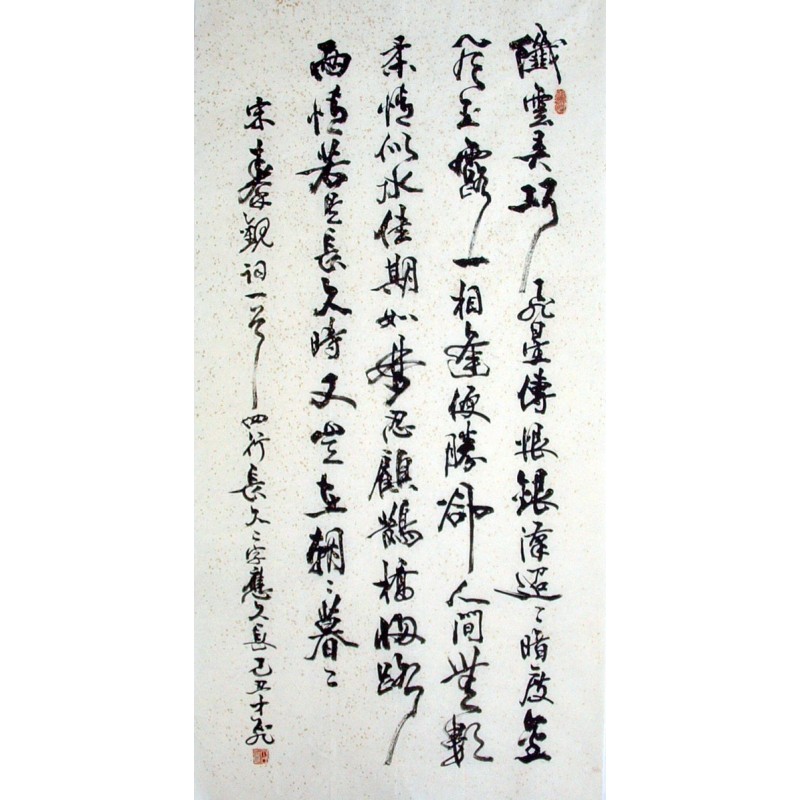 纖雲弄巧飛星傳恨銀漢迢〻暗度金
風玉露一相逢便勝卻人間無數
柔情似水佳期如夢忍顧鵲橋歸路
兩情若是長久時又豈在朝〻暮〻
宋秦觀詞一首四行長久二字應久長己丑才飛